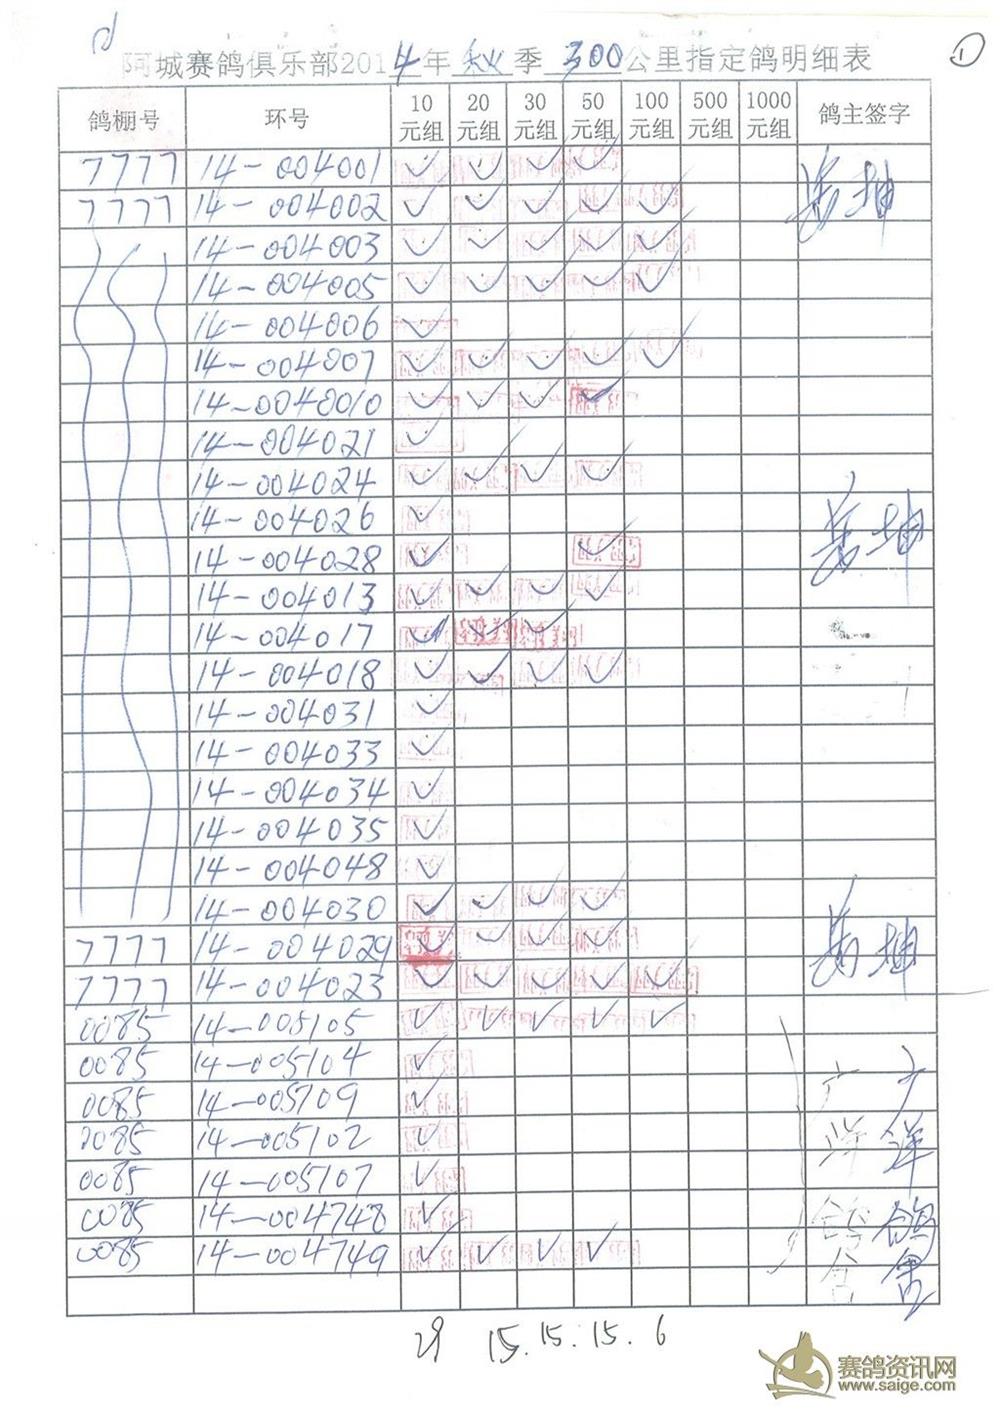 阿城赛鸽俱乐部2014年秋季300公里指定鸽明细表 ①
鸽棚号 环号 10元组 20元组 30元组 50元组 100元组 500元组 1000元组 鸽主签字
7777 14-004001 ✓ ✓ ✓ ✓
7777 14-004002 ✓ ✓ ✓ ✓ ✓
14-004003 ✓ ✓ ✓ ✓ ✓
14-004005 ✓ ✓ ✓ ✓ ✓
14-004006 ✓
14-004007 ✓ ✓ ✓ ✓ ✓
14-0040010 ✓ ✓ ✓ ✓
14-004021 ✓
14-004024 ✓ ✓ ✓ ✓
14-004026 ✓
14-004028 ✓ ✓
14-004013 ✓ ✓ ✓ ✓
14-004017 ✓ ✓ ✓
14-004018 ✓ ✓ ✓ ✓
14-004031 ✓
14-004033 ✓
14-004034 ✓
14-004035 ✓
14-004048 ✓
14-004030 ✓ ✓ ✓ ✓
7777 14-004029 ✓ ✓ ✓ ✓
7777 14-004023 ✓ ✓ ✓ ✓ ✓
0085 14-005105 ✓ ✓ ✓ ✓ ✓
0085 14-005104 ✓
0085 14-005109 ✓
0085 14-005102 ✓
0085 14-005107 ✓
0085 14-004748 ✓
0085 14-004749 ✓ ✓ ✓ ✓
29 15. 15. 15. 6
赛鸽资讯网
www.saige.com